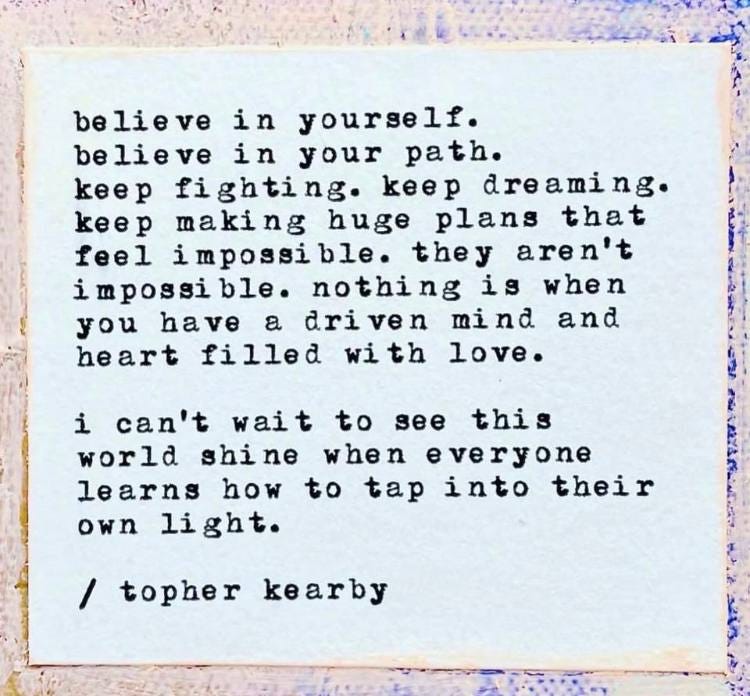 believe in yourself.
believe in your path.
keep fighting. keep dreaming.
keep making huge plans that
feel impossible. they aren't
impossible. nothing is when
you have a driven mind and
heart filled with love.
i can't wait to see this
world shine when everyone
learns how to tap into their
own light.
/ topher kearby